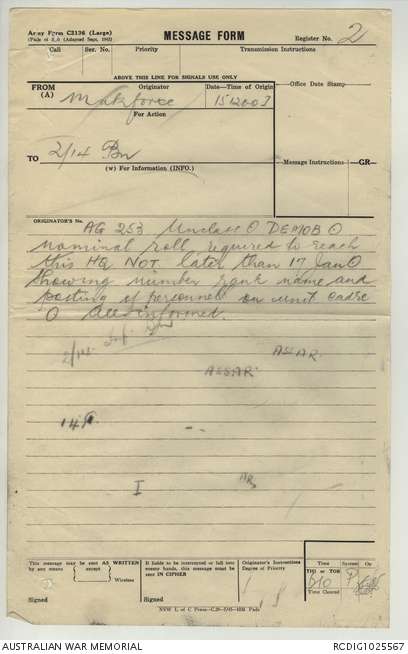 Army Form C2136 (Large)
MESSAGE FORM
Register No. 2
Call Ser. No. Priority Transmission Instructions
ABOVE THIS LINE FOR SIGNALS USE ONLY
FROM (A) Originator Date—Time of Origin Office Date Stamp
Makforce 151200J
For Action
TO 2/14 Bn
(w) For Information (INFO.) Message Instructions GR
ORIGINATOR'S No.
AG 253 Unclass O DEMOB O
nominal roll required to reach
this HQ NOT later than 17 Jan O
showing number rank name and
posting of personnel on unit cadre
O All informed.
2/14 Inf Bn
ASSAR
ASSAR
14
I
This message may be sent AS WRITTEN by any means (except) Wireless
If liable to be intercepted or fall into enemy hands, this message must be sent IN CIPHER
Originator's Instructions Degree of Priority
Time System Op
THI or TOR
Time Cleared
Signed Signed
AUSTRALIAN WAR MEMORIAL RCDIG1025567